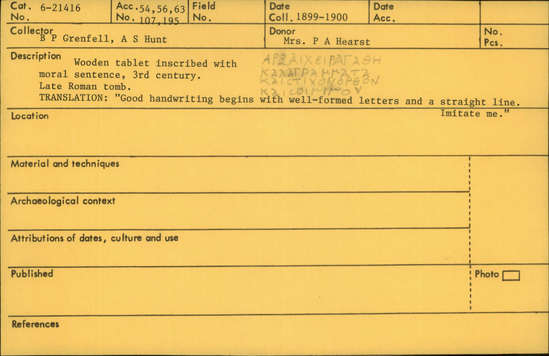 Cat. No. 6-21416
Acc. No. 54,56,63 107,195
Field No.
Date Coll. 1899-1900
Date Acc.
Collector B P Grenfell, A S Hunt
Donor Mrs. P A Hearst
No. Pcs.
Description Wooden tablet inscribed with
moral sentence, 3rd century.
Late Roman tomb.
TRANSLATION: "Good handwriting begins with well-formed letters and a straight line.
Imitate me."
Location
Material and techniques
Archaeological context
Attributions of dates, culture and use
Published
Photo
References